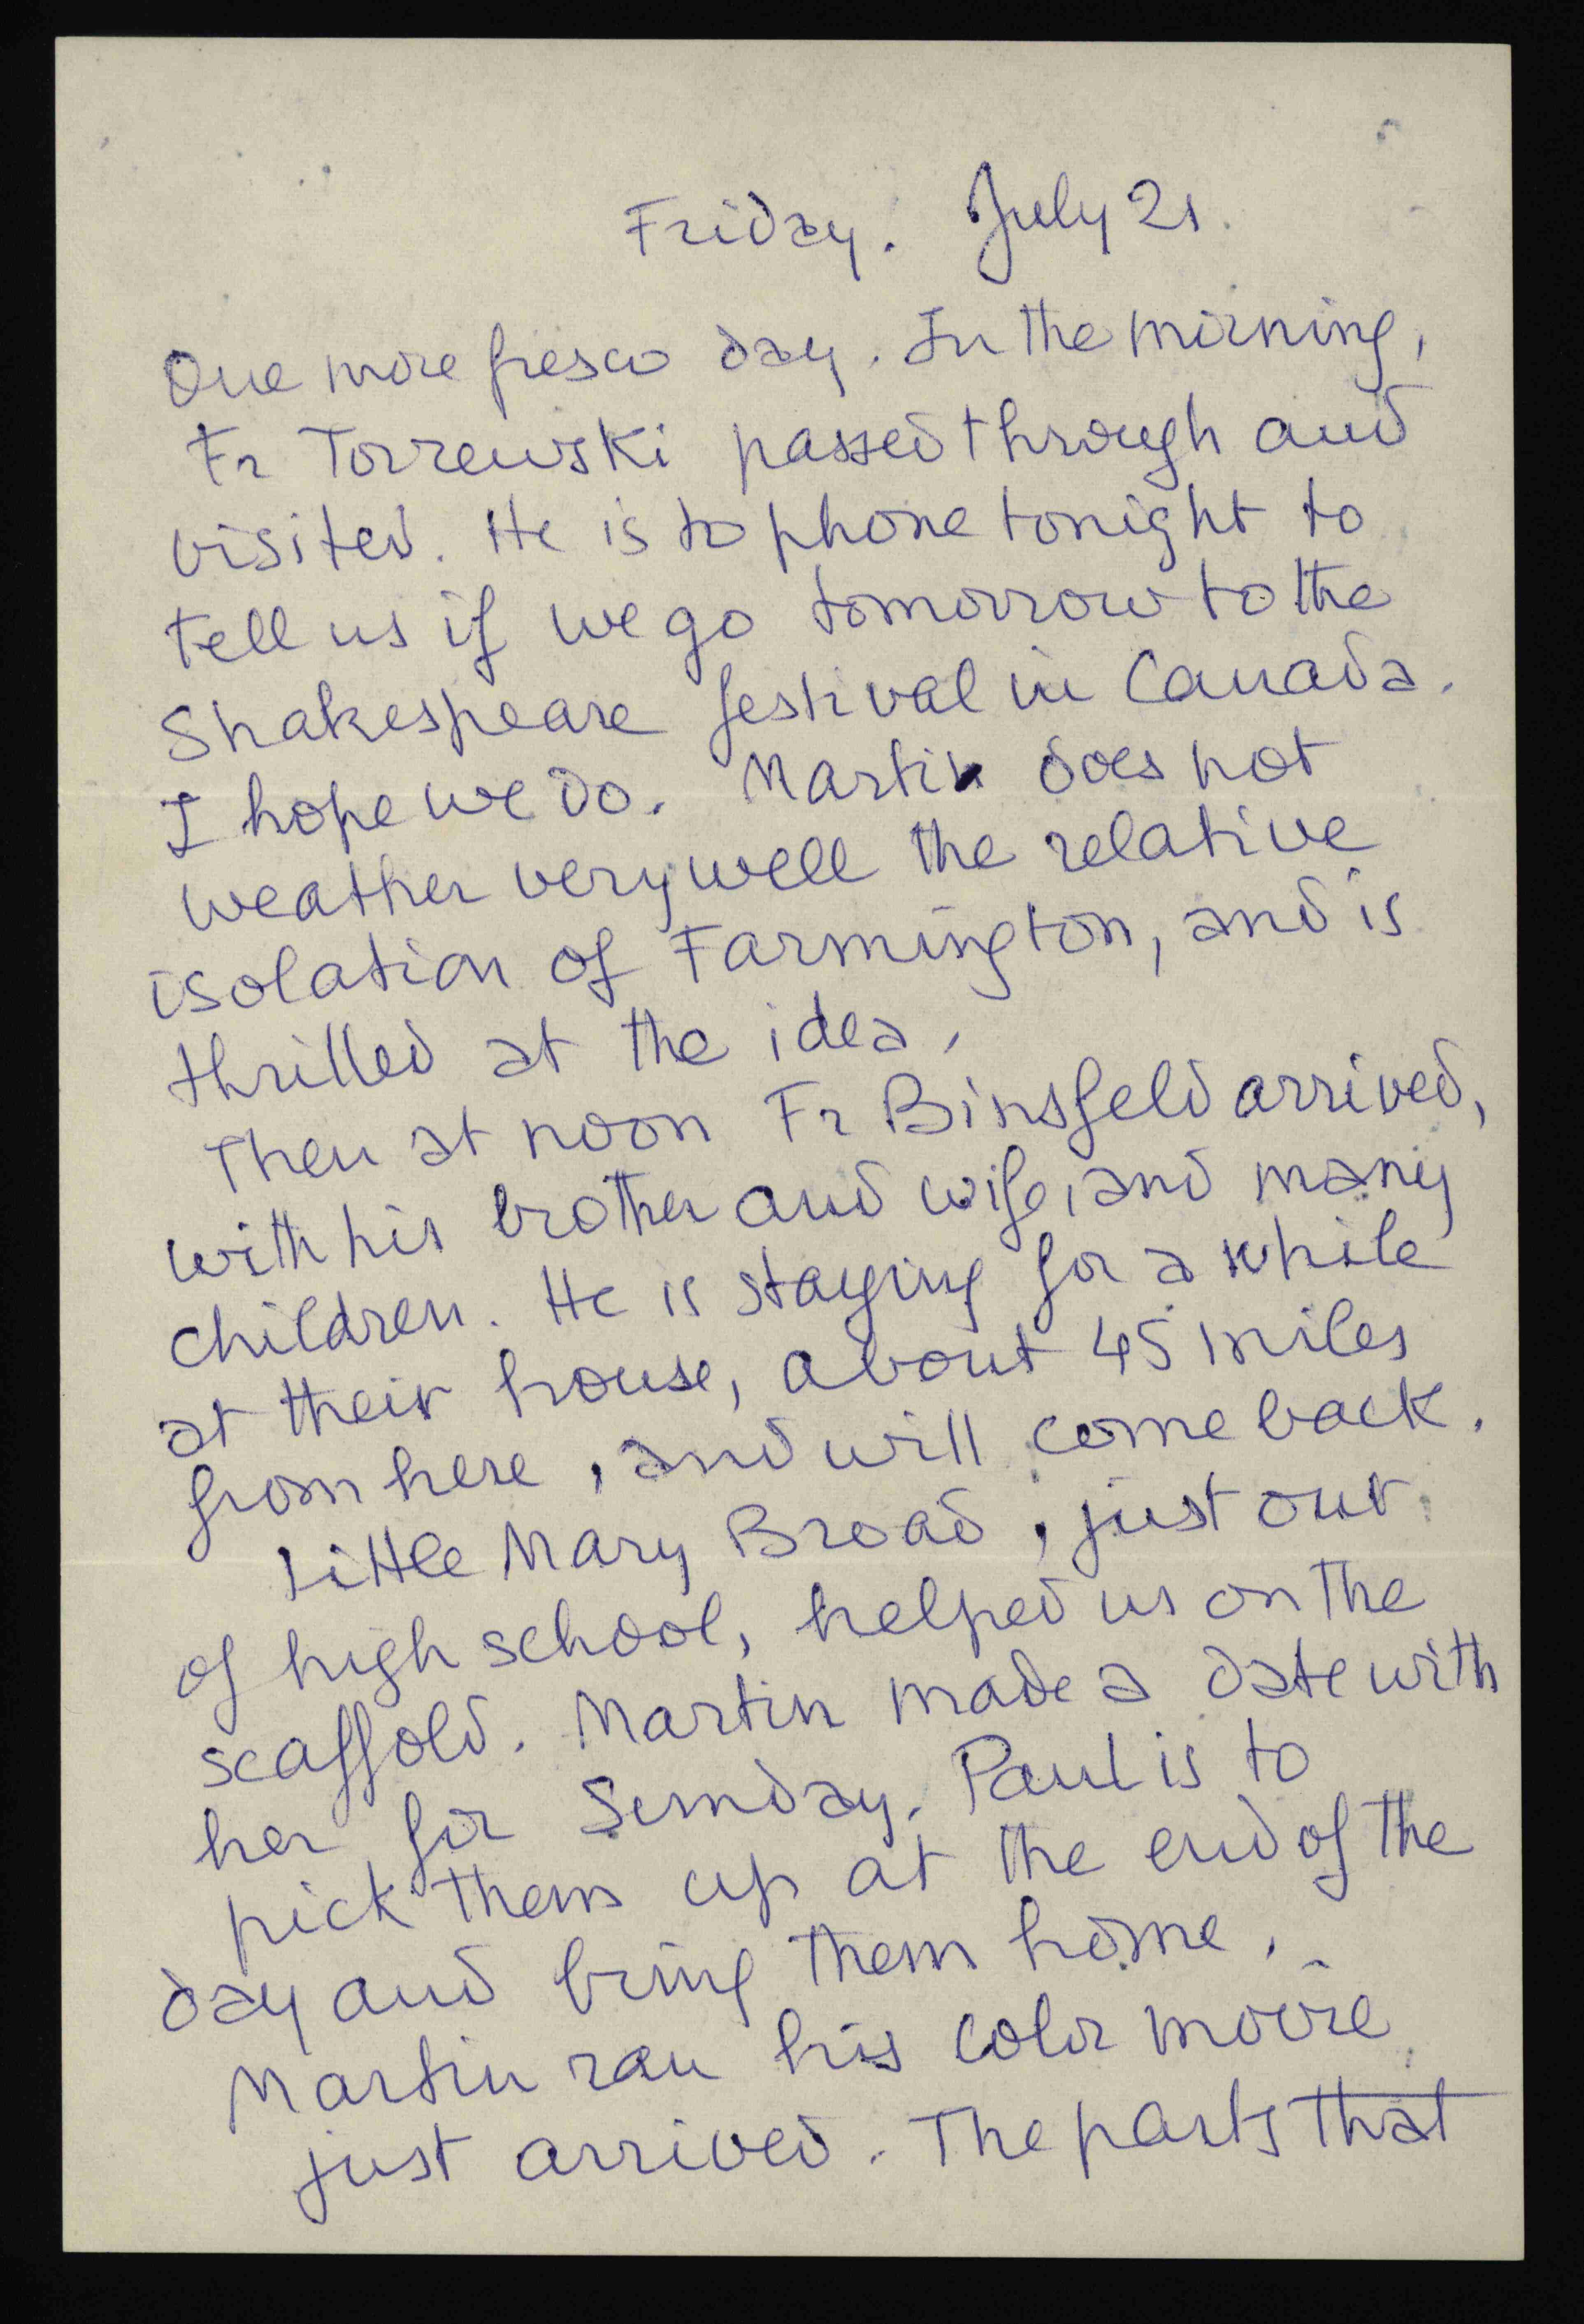 Friday. July 21.
One more fresco day. In the morning,
Fr Torrewski passed through and
visited. He is to phone tonight to
tell us if we go tomorrow to the
Shakespeare festival in Canada.
I hope we do. Martin does not
weather very well the relative
isolation of Farmington, and is
thrilled at the idea.
Then at noon Fr Binsfeld arrived,
with his brother and wife, and many
children. He is staying for a while
at their house, about 45 miles
from here, and will come back.
Little Mary Broad, just out
of high school, helped us on the
scaffold. Martin made a date with
her for Sunday. Paul is to
pick them up at the end of the
day and bring them home.
Martin ran his color movie
just arrived. The parts that